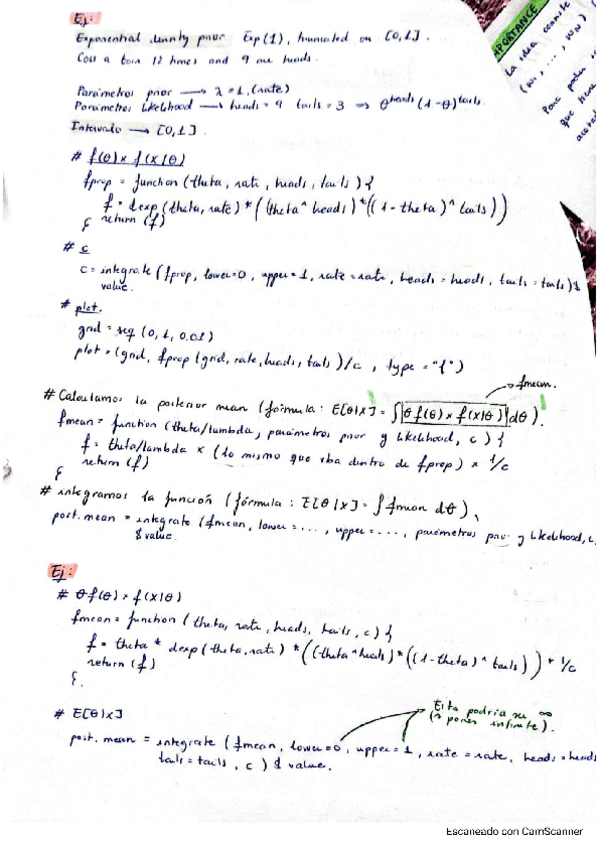 Ej:
Exponential density prior Exp(1), truncated on [0,1].
Coss a coin 12 times and 9 are heads.
Parámetros prior → λ = 1 (rate)
Parámetros Likelihood → heads = 9 tails = 3 ⇒ θ^heads (1-θ)^tails.
Intervalo → [0,1].
# f(θ) x f(X|θ)
fprop = function (theta, rate, heads, tails) {
f = dexp (theta, rate) * ((theta ^ heads) * ((1 - theta) ^ tails))
return (f)
}
# c
c = integrate (fprop, lower=0, upper=1, rate=rate, heads=heads, tails=tails)$
value.
# plot.
grid = seq (0, 1, 0.01)
plot = (grid, fprop (grid, rate, heads, tails)/c, type = "l")
fmean.
# Calculamos la posterior mean (fórmula: E[θ|X] = ∫ θ f(θ) x f(X|θ) dθ).
fmean = function (theta/lambda, parámetros prior y Likelihood, c) {
f = theta/lambda x (lo mismo que iba dentro de fprop) x 1/c
return (f)
}
# integramos la función (fórmula: E[θ|X] = ∫ fmean dθ)
post.mean = integrate (fmean, lower = ..., upper = ..., parámetros prior y Likelihood, c
$ value.
Ej:
# θ f(θ) x f(X|θ)
fmean = function (theta, rate, heads, tails, c) {
f = theta * dexp (theta, rate) * ((theta ^ heads) * ((1 - theta) ^ tails)) * 1/c
return (f)
}.
# E[θ|X]
Esta podría ser ∞
(y pones infinite).
post.mean = integrate (fmean, lower=0, upper=1, rate=rate, heads=heads
tails=tails, c) $ value.
IMPORTANCE
La idea consiste
(w1, ..., wN)
Para poder
que hace
Escaneado con CamScanner